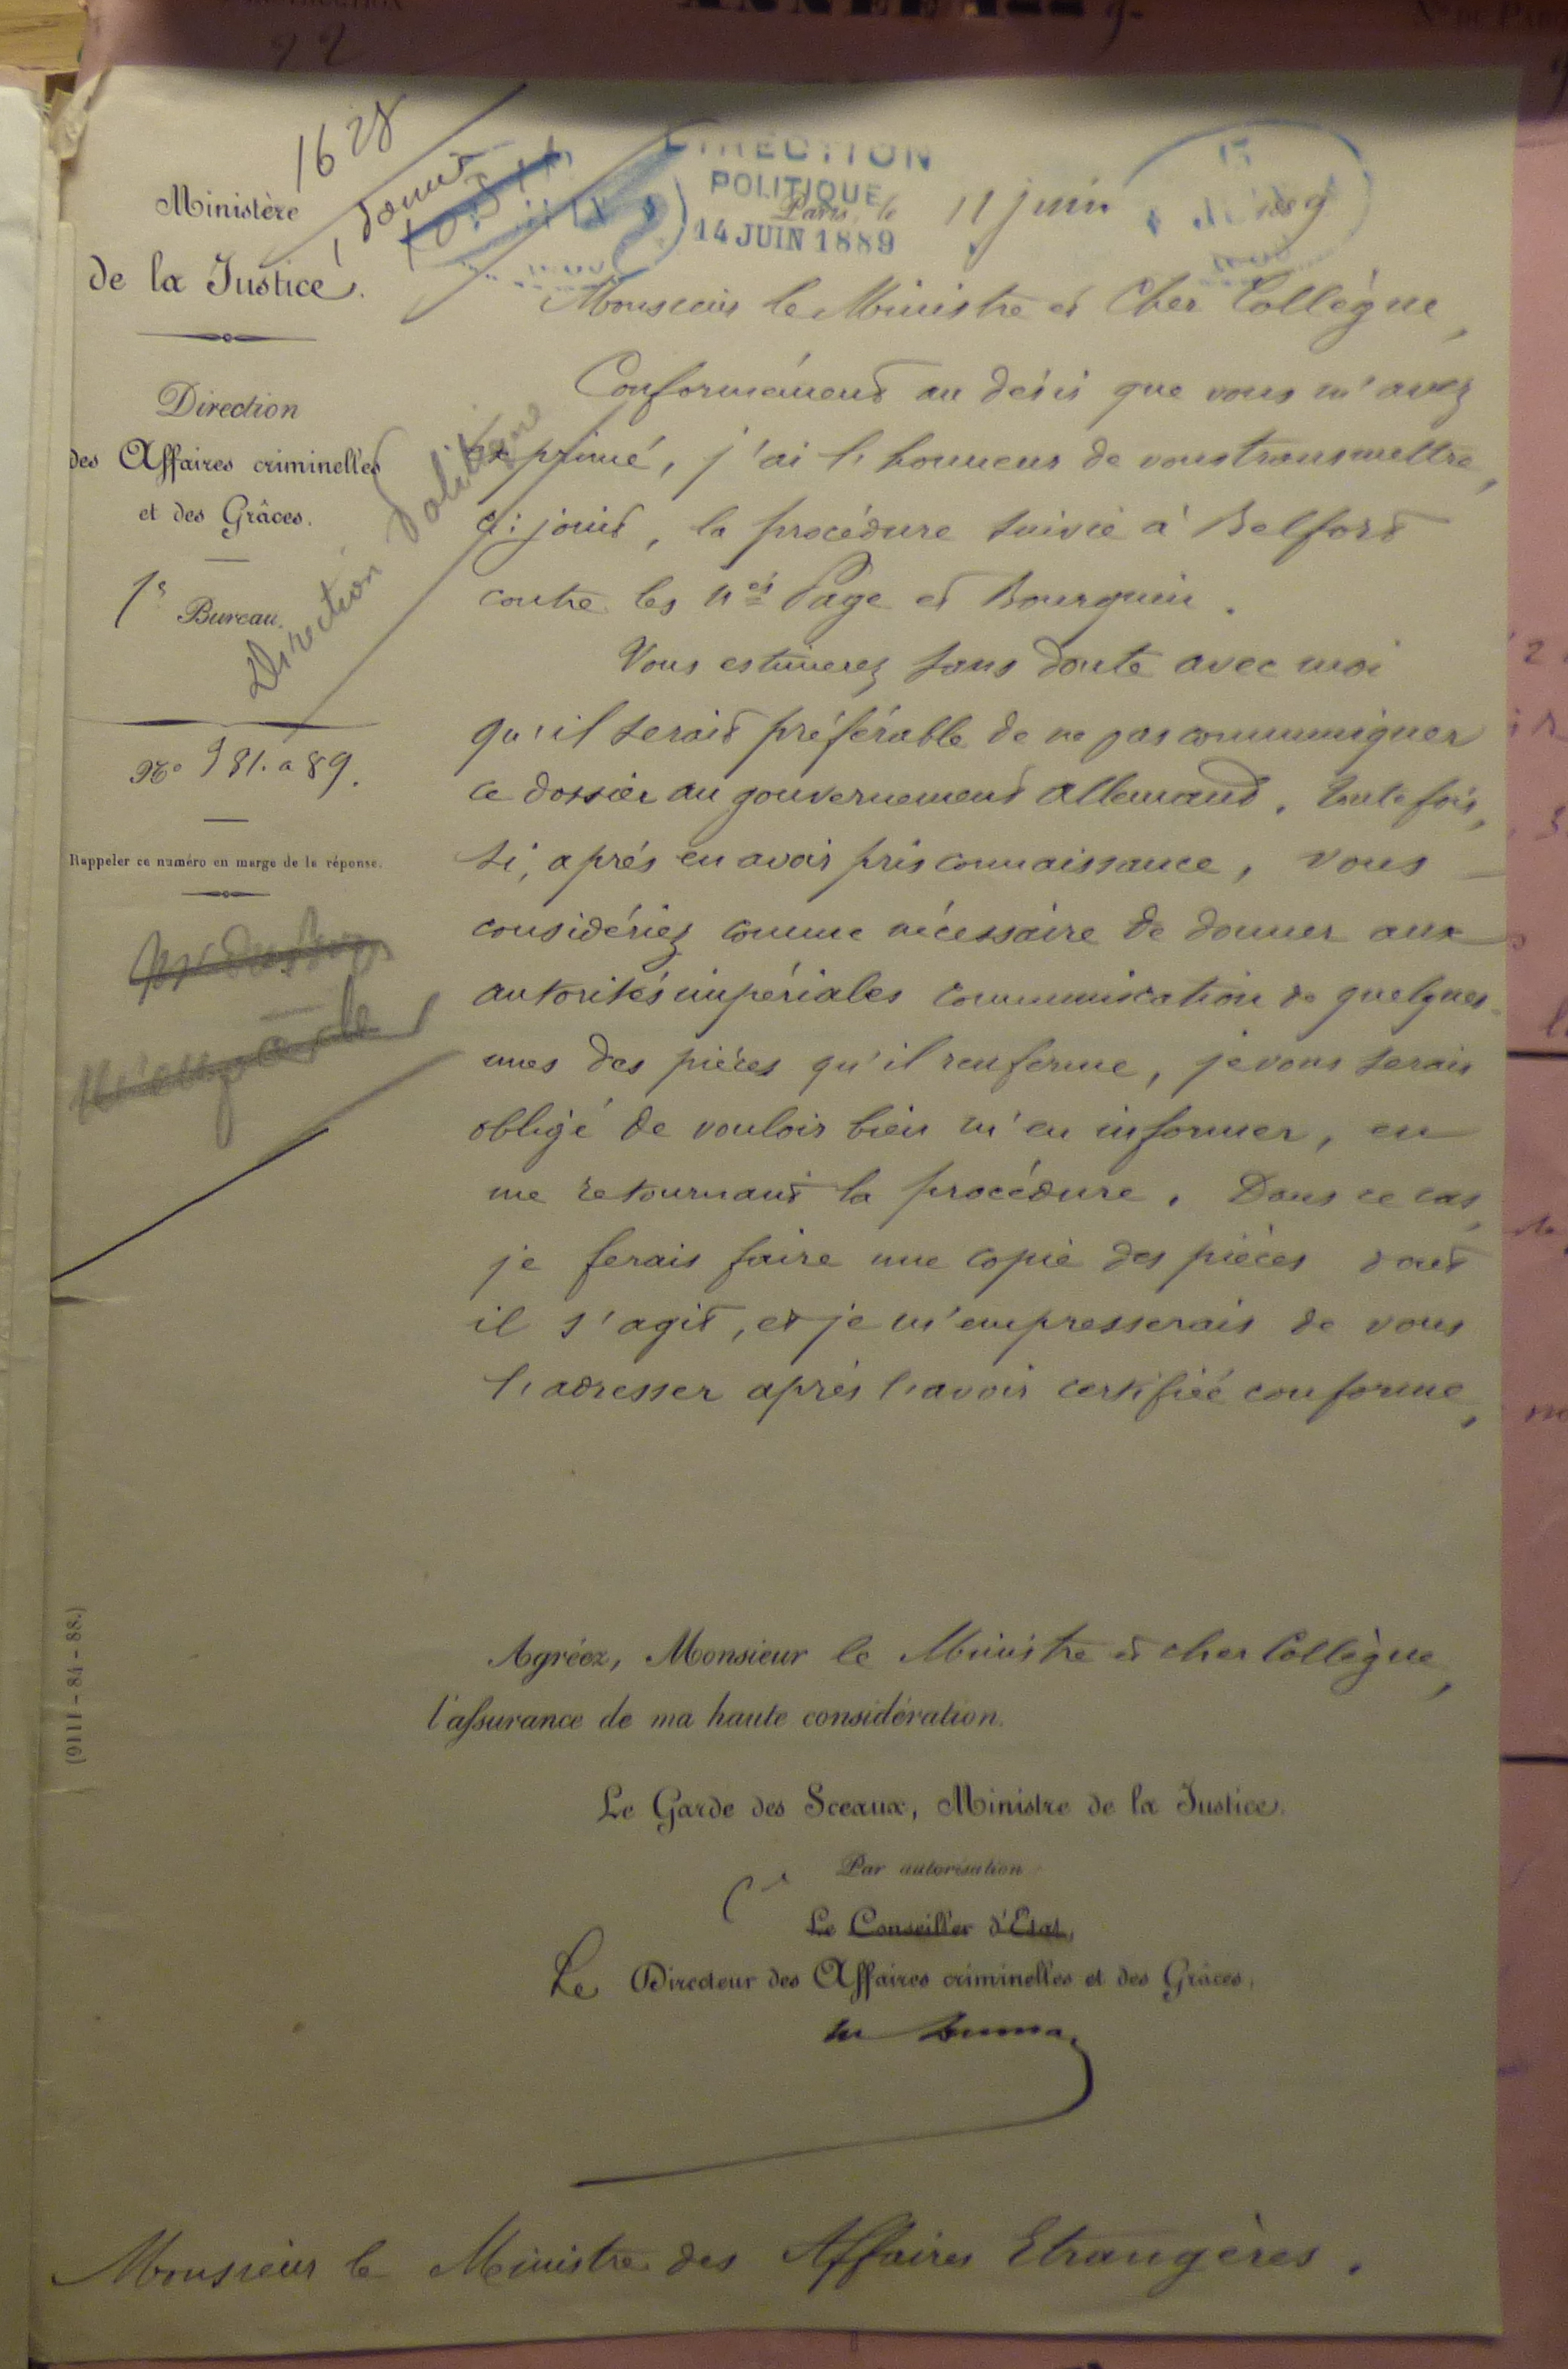 ANNÉE 188 9
22
1628
Ministère
de la Justice.
Direction
des Affaires criminelles
et des Grâces.
1er Bureau.
Direction Politique
No 981. a 89.
Rappeler ce numéro en marge de la réponse.
DIRECTION
POLITIQUE
14 JUIN 1889
Paris, le 11 juin 1889
Monsieur le Ministre et Cher Collègue,
Conformément au désir que vous m'avez
exprimé, j'ai l'honneur de vous transmettre,
ci-joint, la procédure suivie à Belfort
contre les nés Page et Bourquin.
Vous estimerez sans doute avec moi
qu'il serait préférable de ne pas communiquer
ce dossier au gouvernement allemand. Toutefois,
si, après en avoir pris connaissance, vous
considériez comme nécessaire de donner aux
autorités impériales communication de quelques
unes des pièces qu'il renferme, je vous serais
obligé de vouloir bien m'en informer, en
me retournant la procédure. Dans ce cas,
je ferais faire une copie des pièces dont
il s'agit, et je m'empresserais de vous
l'adresser après l'avoir certifiée conforme,
Agréez, Monsieur le Ministre et cher Collègue,
l'assurance de ma haute considération.
Le Garde des Sceaux, Ministre de la Justice.
Par autorisation
Le Conseiller d'État,
Le Directeur des Affaires criminelles et des Grâces,
Monsieur le Ministre des Affaires Etrangères.
(9111-84-88.)